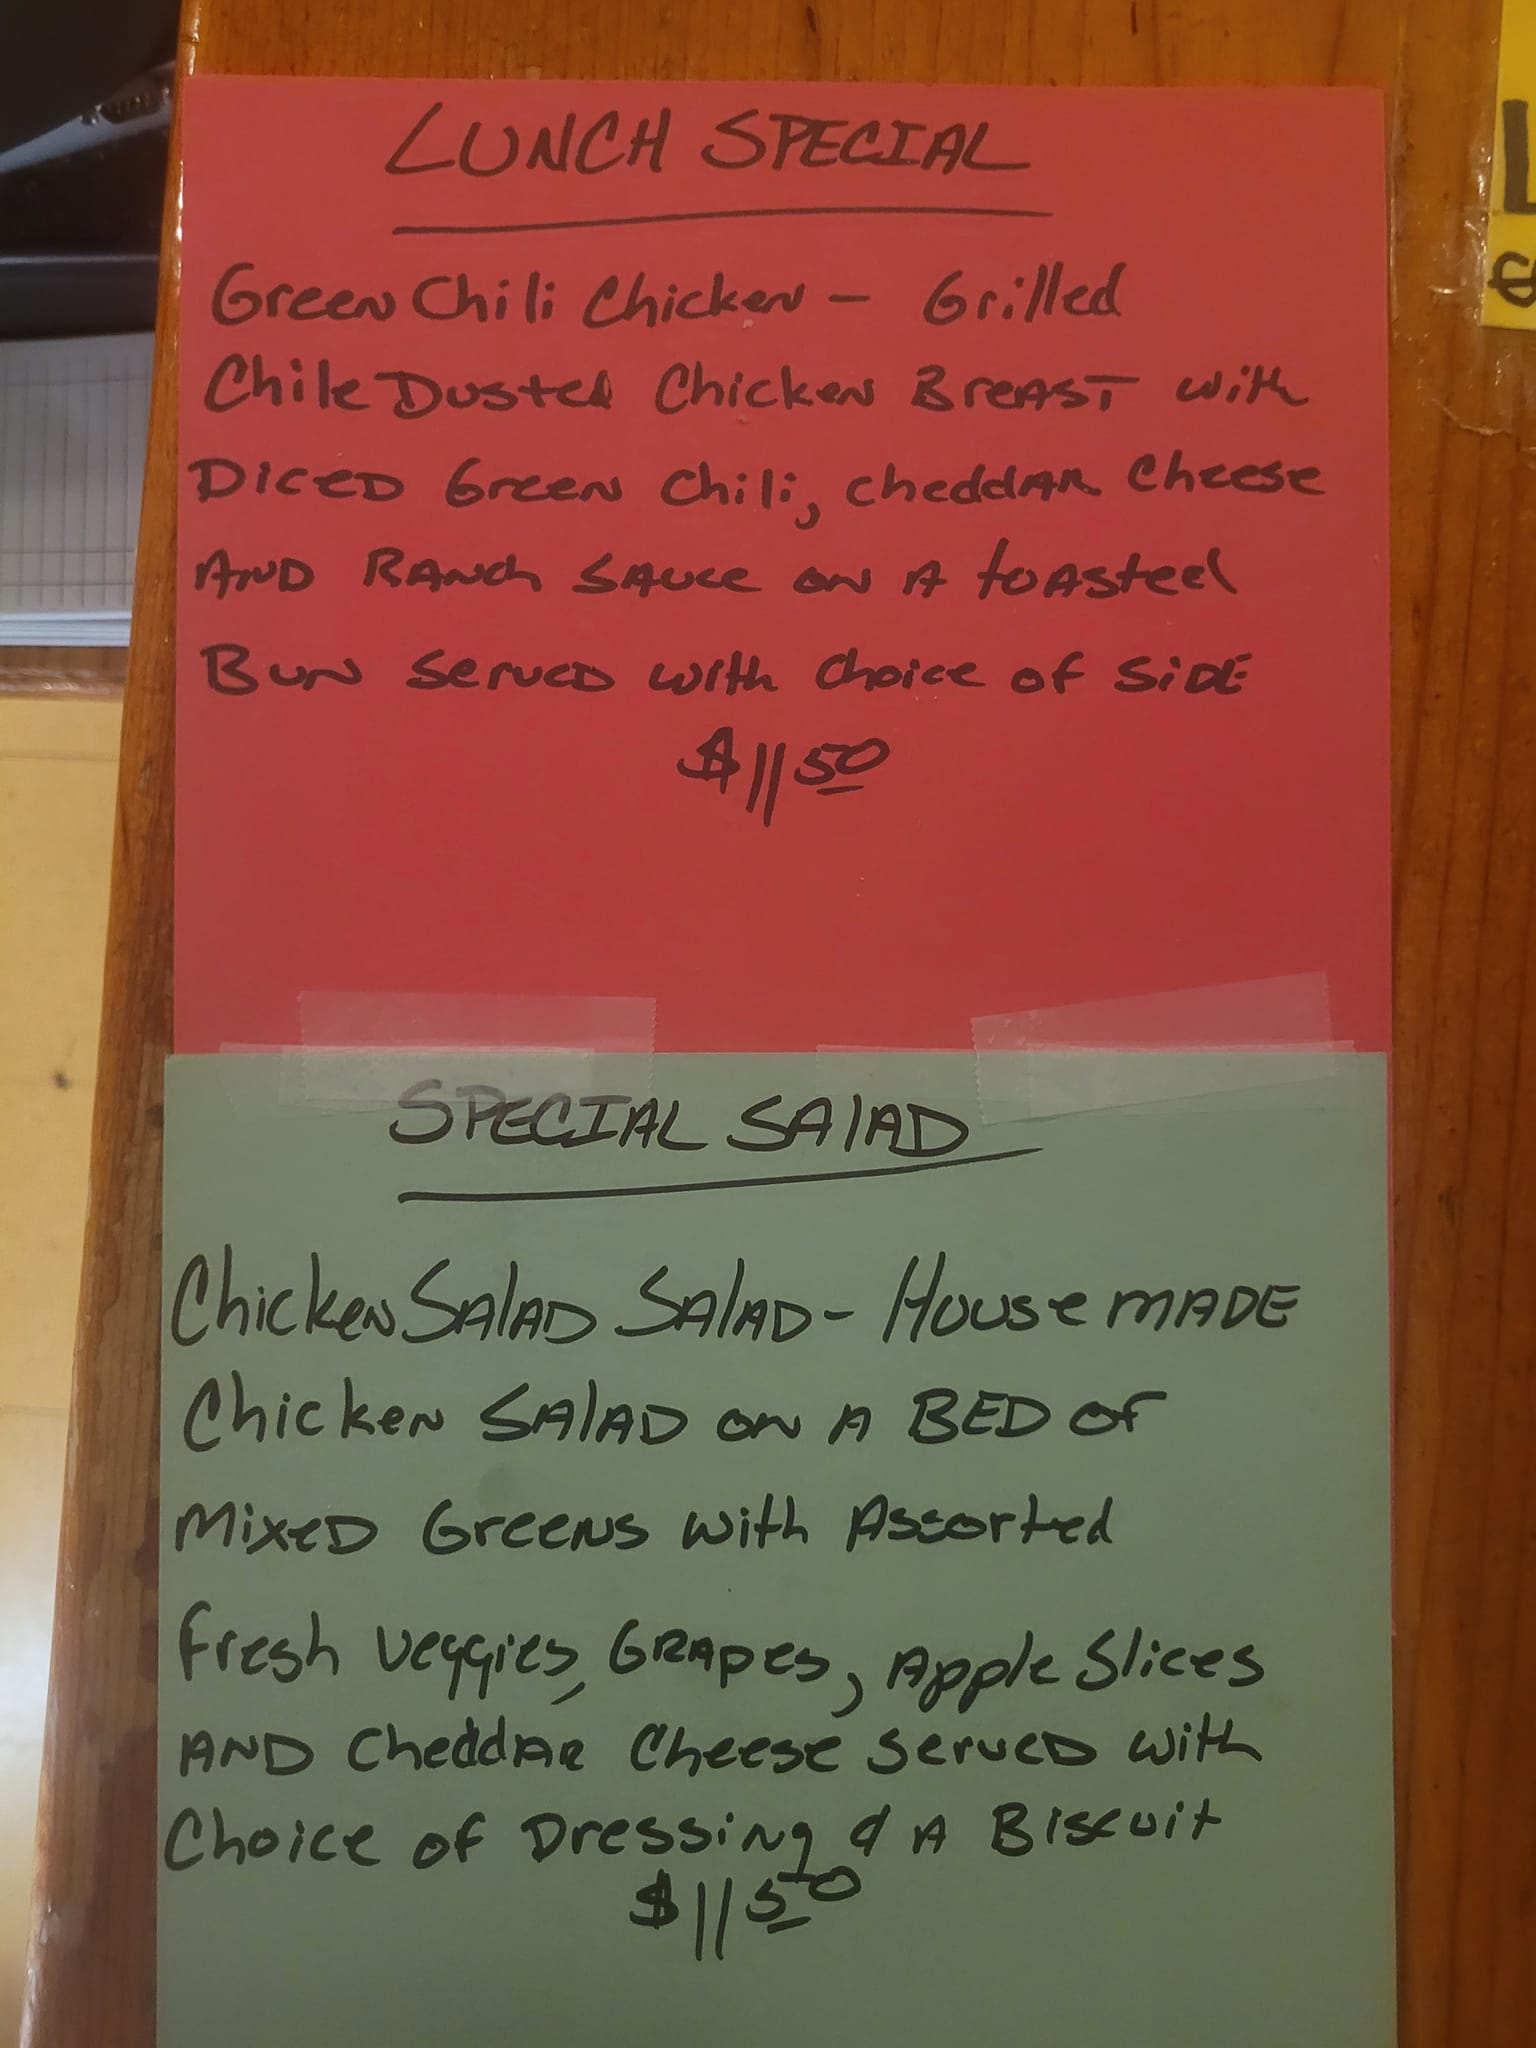 LUNCH SPECIAL
Green Chili Chicken - Grilled
Chile Dusted Chicken Breast with
Diced Green Chili, cheddar Cheese
AND RANch SAUce on A toAsted
Bun served with choice of SiDE
$11 50
SPECIAL SALAD
Chicken SALAD SALAD - House mADE
Chicken SALAD on A BED of
Mixed Greens with Assorted
Fresh Veggies, GRApes, Apple Slices
AND CheddAR Cheese served with
Choice of Dressing & A Biscuit
$11 50
L